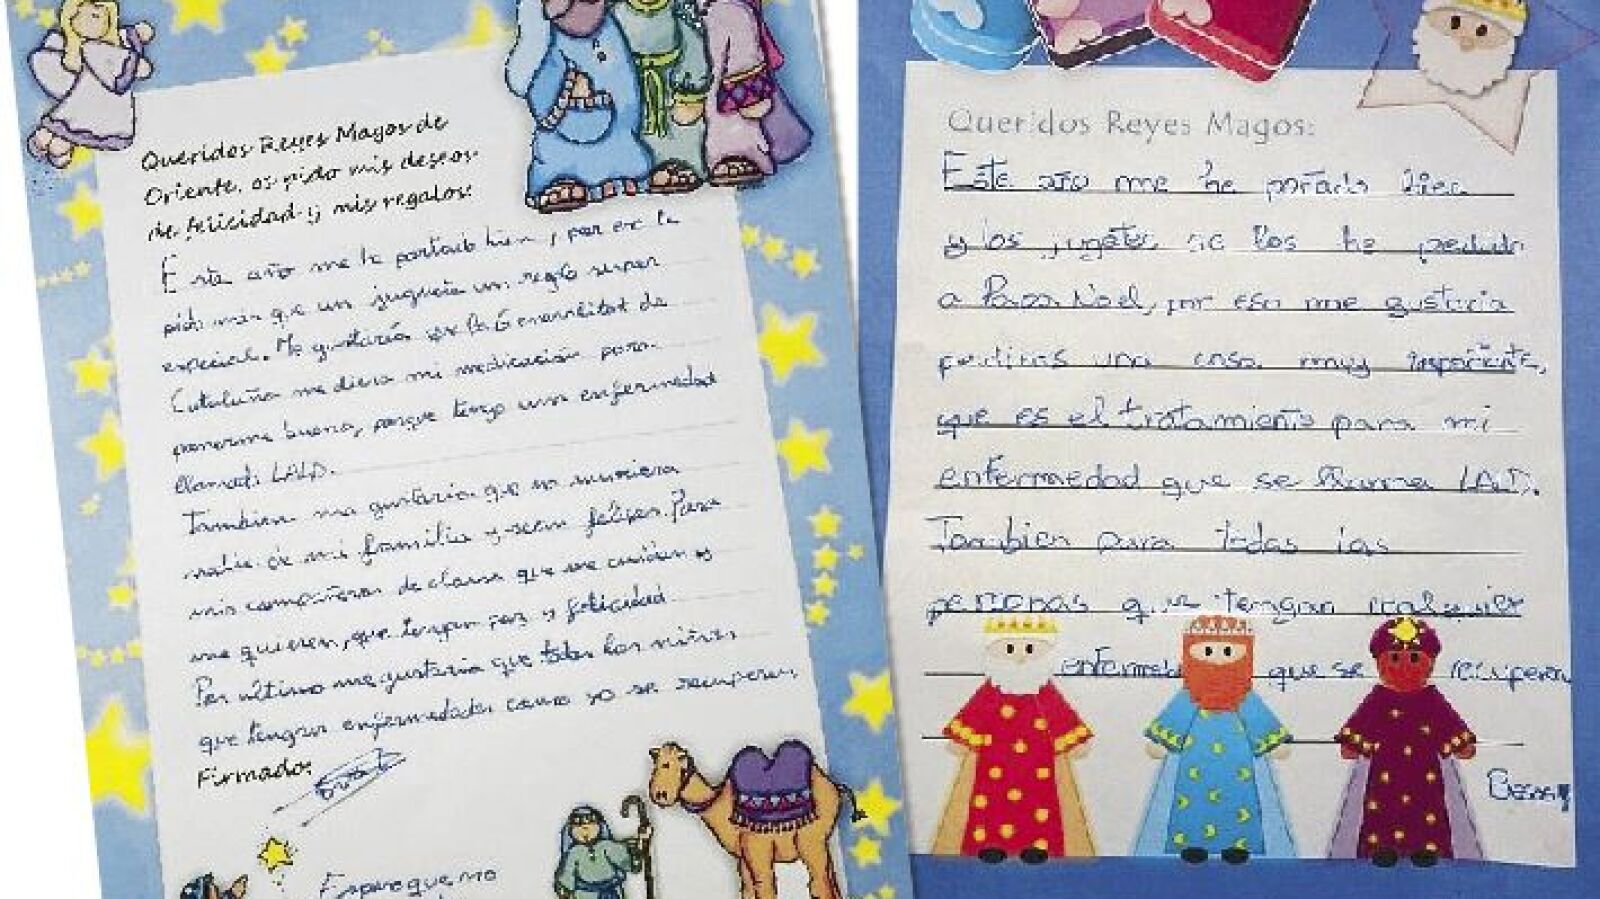 Queridos Reyes Magos de
Oriente, os pido mis deseos
de felicidad y mis regalos:
Este año me he portado bien, por eso la
pido más que un juguete un regalo super
especial. Me gustaría que la Generalitat de
Cataluña me diera mi medicación para
ponerme bueno, porque tengo una enfermedad
llamada LALD.
También me gustaría que no muriera
nadie de mi familia y sean felices. Para
mis compañeros de clase que me cuidan y
me quieren, que tengan paz y felicidad.
Por último me gustaría que todos los niños
que tengan enfermedades como yo se recuperen.
Firmado:
Espero que no
Queridos Reyes Magos:
Este año me he portado bien
y los juguetes ya los he pedido
a Papa Noel, por eso me gustaria
pediros una cosa muy importante,
que es el tratamiento para mi
enfermedad que se llama LALD.
Tambien para todas las
personas que tengan cualquier
enfermedad que se recuperen
Besos